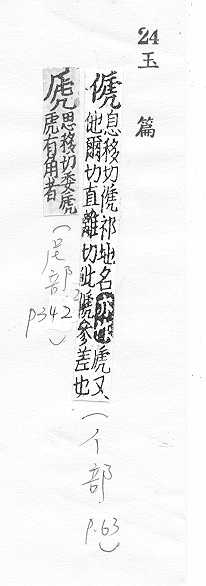 24
玉篇
傂息移切傂祁地名亦作虒又
他爾切直離切傂參差也
(亻部 p.63)
虒思移切委虒
虎有角者
(虎部 p342)